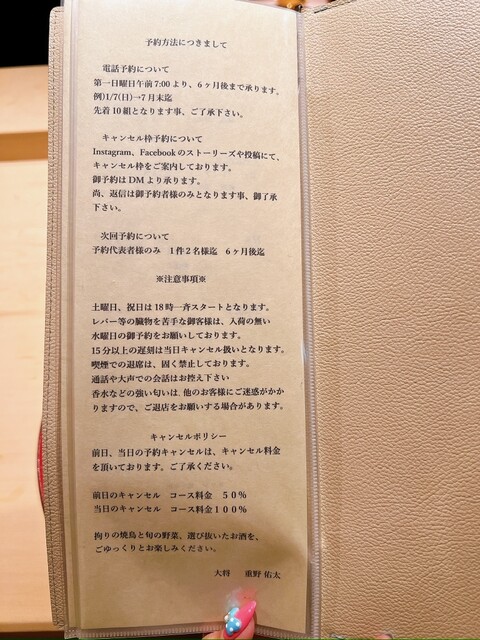 予約方法につきまして
電話予約について
第一日曜日午前7:00より、6ヶ月後まで承ります。
例)1/7(日)→7月末迄
先着10組となります事、ご了承下さい。
キャンセル枠予約について
Instagram、Facebookのストーリーズや投稿にて、
キャンセル枠をご案内しております。
御予約はDMより承ります。
尚、返信は御予約者様のみとなります事、御了承
下さい。
次回予約について
予約代表者様のみ 1件2名様迄 6ヶ月後迄
※注意事項※
土曜日、祝日は18時一斉スタートとなります。
レバー等の臓物を苦手な御客様は、入荷の無い
水曜日の御予約をお願いしております。
15分以上の遅刻は当日キャンセル扱いとなります。
喫煙での退席は、固く禁止しております。
通話や大声での会話はお控え下さい
香水などの強い匂いは、他のお客様にご迷惑がかか
りますので、ご退店をお願いする場合があります。
キャンセルポリシー
前日、当日の予約キャンセルは、キャンセル料金
を頂いております。ご了承ください。
前日のキャンセル コース料金 50%
当日のキャンセル コース料金100%
拘りの焼鳥と旬の野菜、選び抜いたお酒を、
ごゆっくりとお楽しみください。
大将 重野 佑太